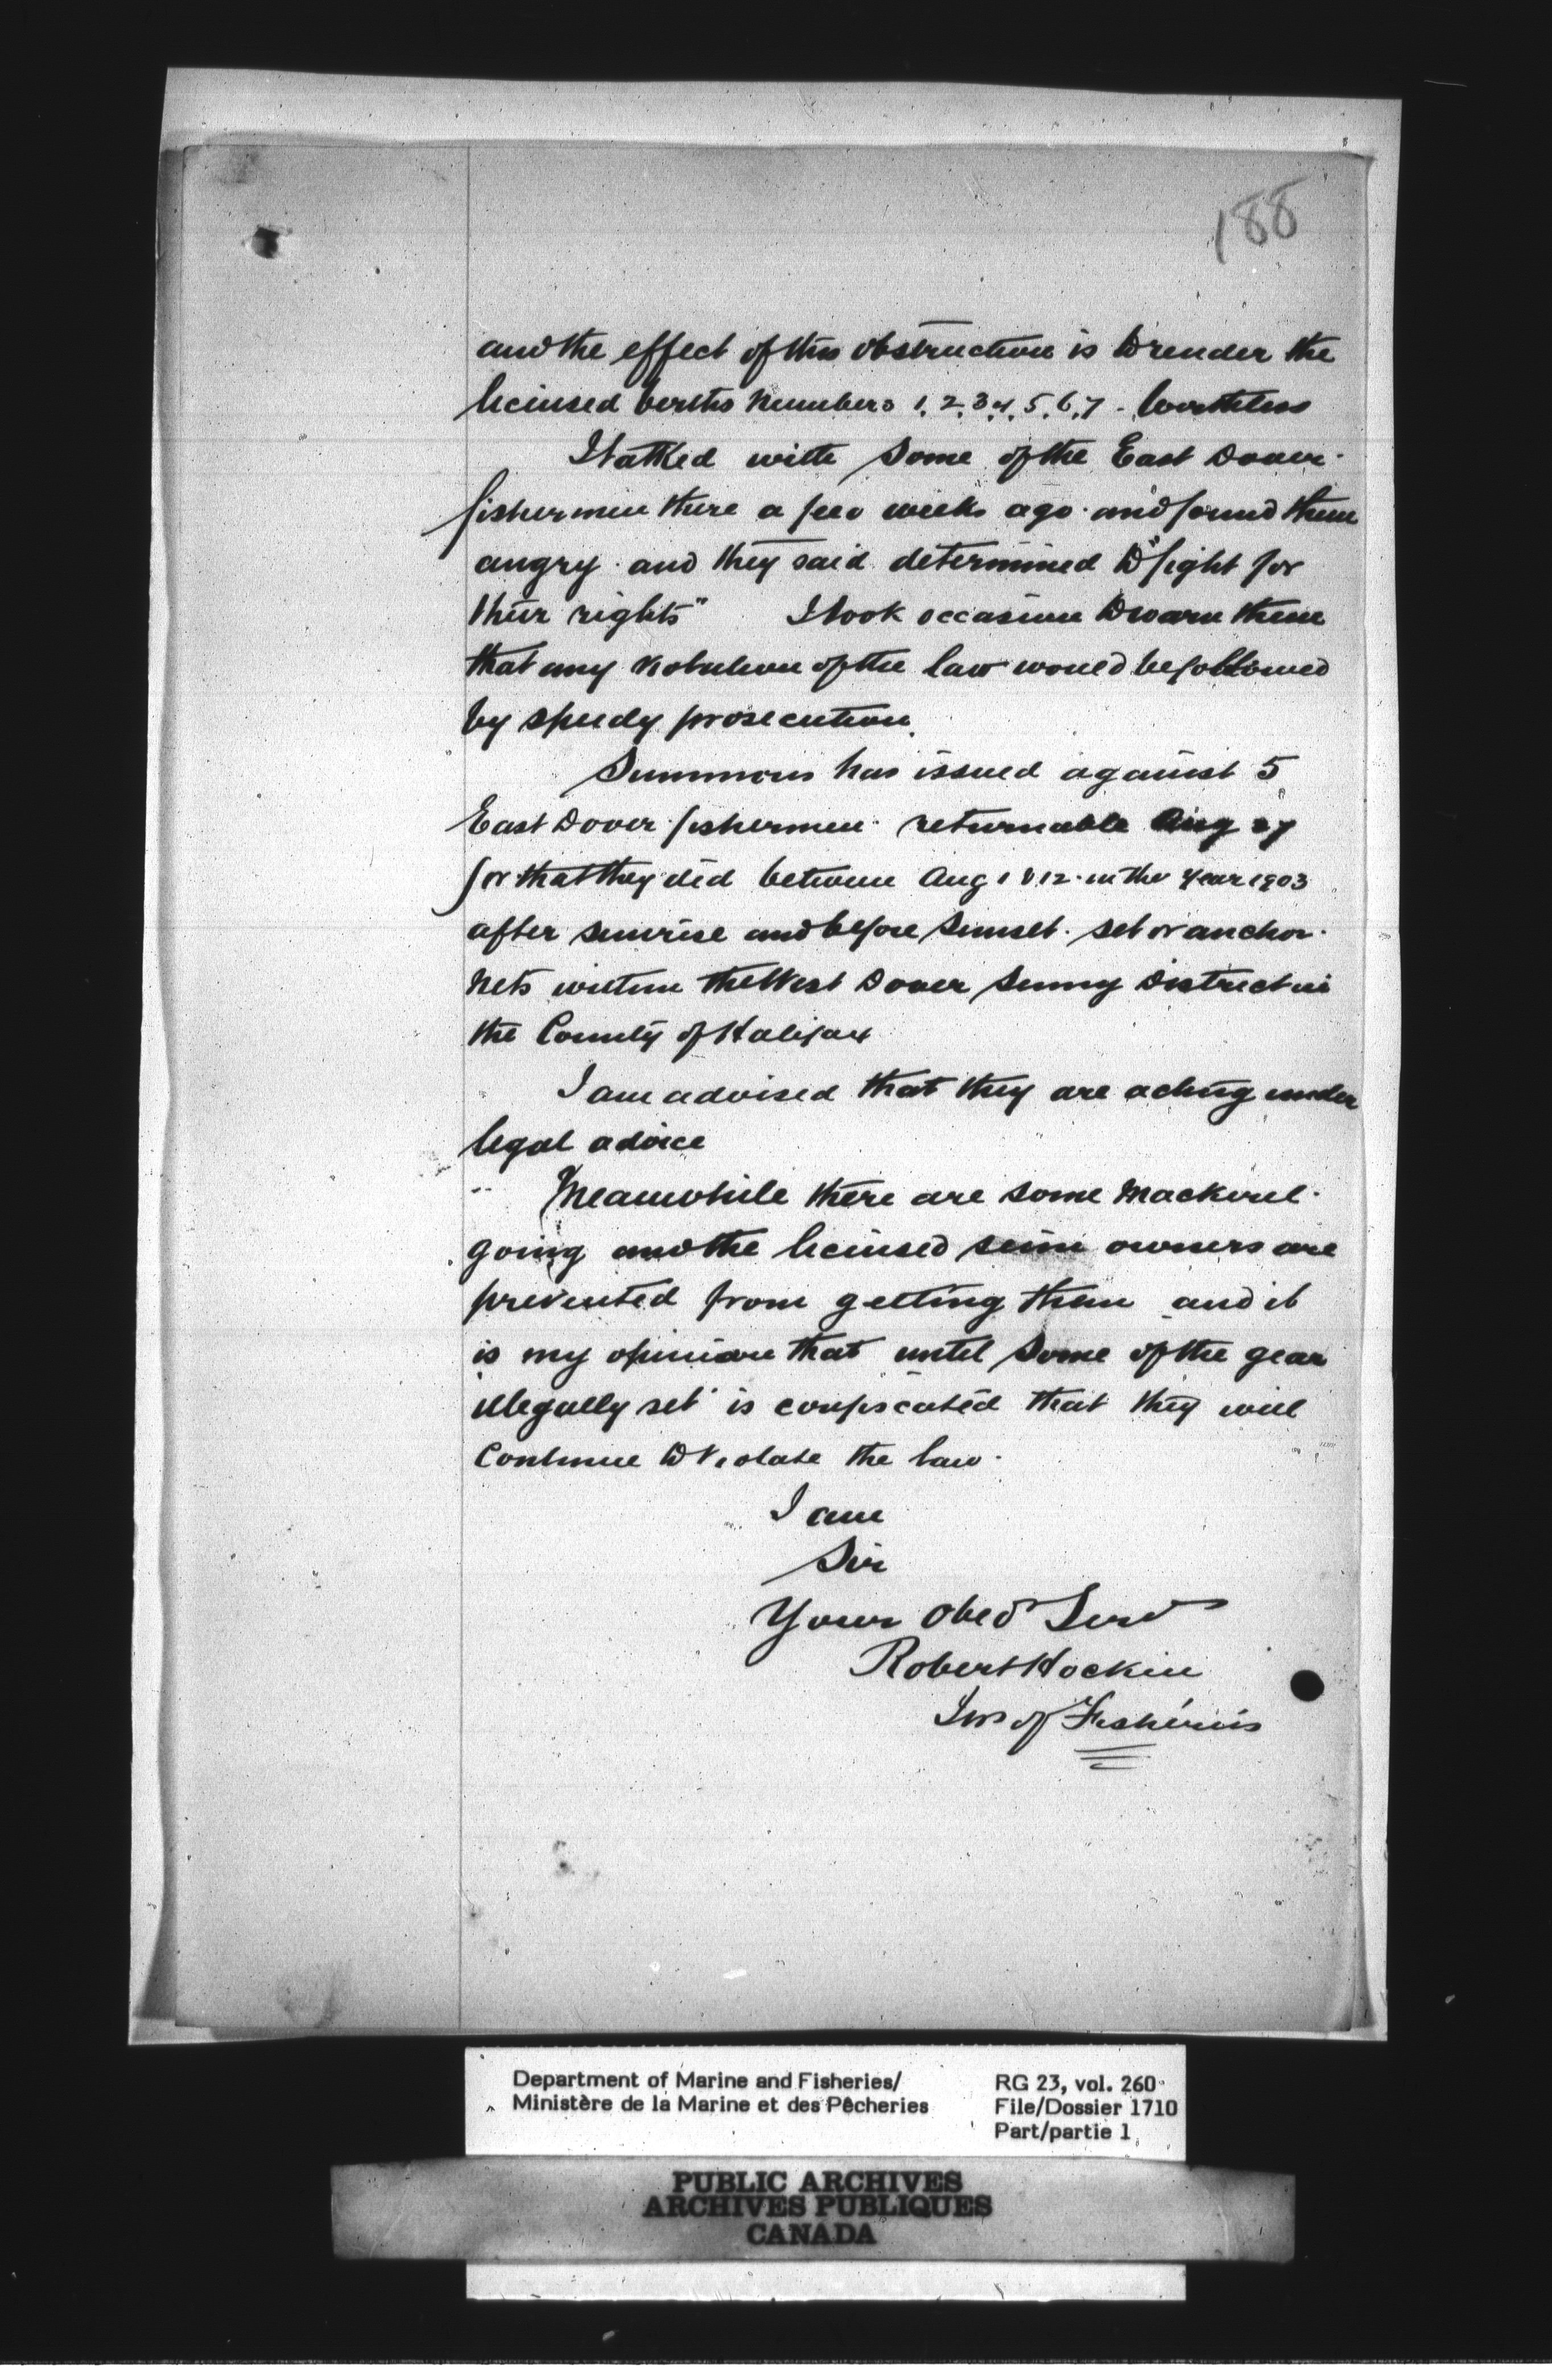 188
and the effect of this obstruction is to render the
licensed berths numbers 1, 2, 3, 4, 5, 6, 7 - worthless
I talked with some of the East Dover
fishermen there a few weeks ago and found them
angry and they said determined to "fight for
their rights" I took occasion to warn them
that any violation of the law would be followed
by speedy prosecution.
Summons has issued against 5
East Dover fishermen returnable Aug 27
for that they did between Aug 1 & 12 in the year 1903
after sunrise and before sunset set or anchor
nets within the West Dover Seining District in
the County of Halifax
I am advised that they are acting under
legal advice
Meanwhile there are some mackerel
going and the licensed seine owners are
prevented from getting them and it
is my opinion that until some of the gear
illegally set is confiscated that they will
continue to violate the law.
I am
Sir
Your Obed Servt
Robert Hockin
Ins of Fisheries
Department of Marine and Fisheries/
Ministère de la Marine et des Pêcheries
RG 23, vol. 260
File/Dossier 1710
Part/partie 1
PUBLIC ARCHIVES
ARCHIVES PUBLIQUES
CANADA